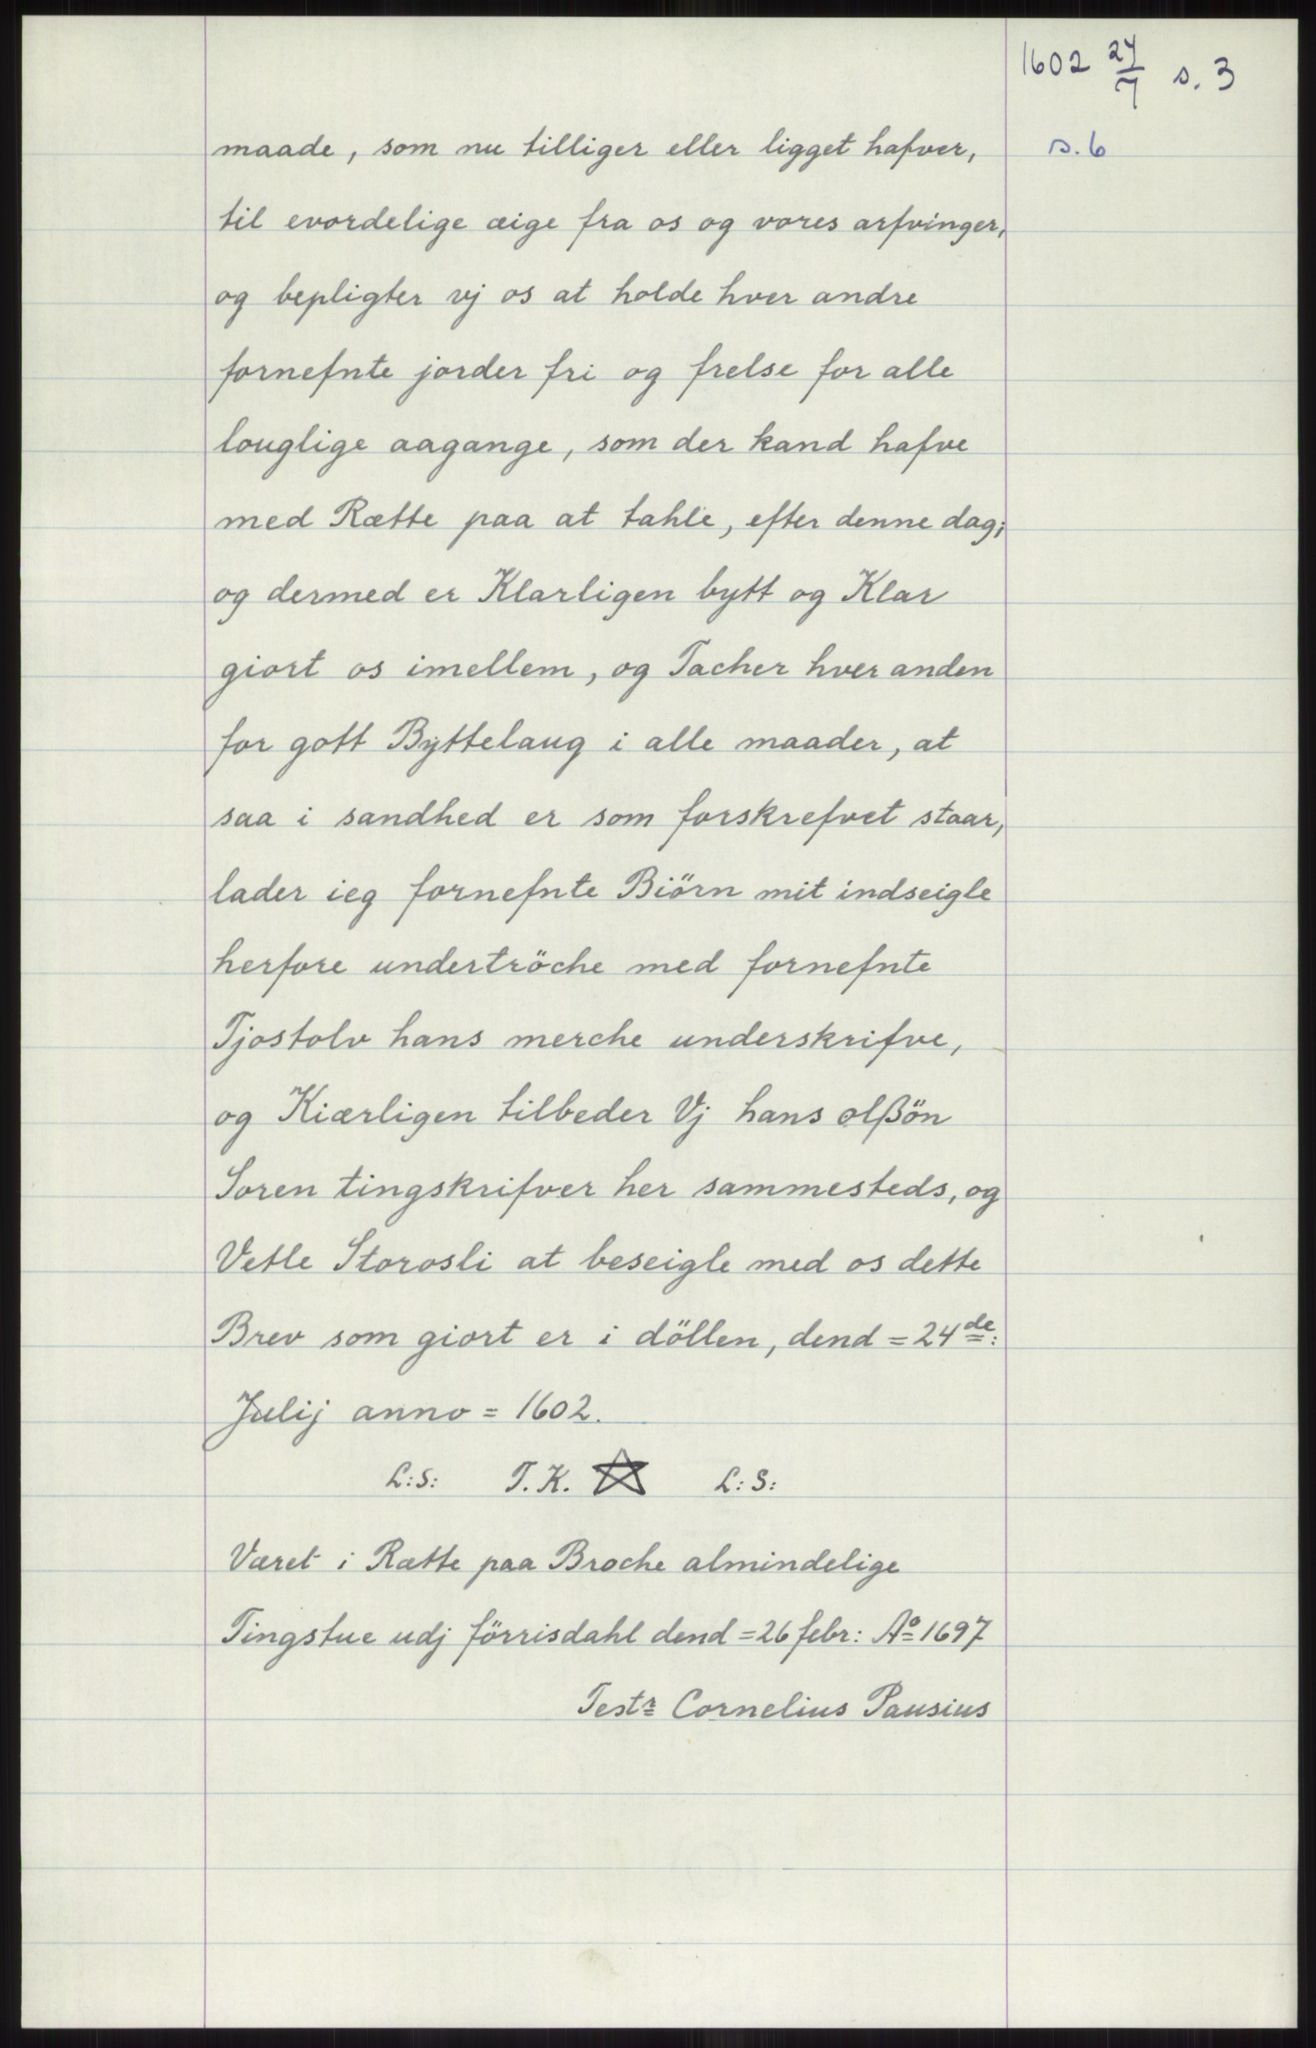 1602 24/7 s. 3
s. 6
maade, som nu tilliger eller ligget hafver,
til evordelige æige fra os og vores arfvinger,
og bepligter vj os at holde hver andre
fornefnte jorder fri og frelse for alle
louglige aagange, som der kand hafve
med Rætte paa at tahle, efter denne dag;
og dermed er Klarligen bytt og Klar
giort os imellem, og Tacher hver anden
for gott Byttelaug i alle maader, at
saa i sandhed er som forskrefvet staar,
lader ieg fornefnte Biörn mit indseigle
herfore undertröche med fornefnte
Tjostolv hans merche underskrifve,
og Kiærligen tilbeder Vj hans olßön
Soren tingskrifver her sammesteds, og
Vetle Storosli at beseigle med os dette
Brev som giort er i döllen, dend = 24de:
Julij anno = 1602.
L:S: T.K. ☆ L:S:
Været i Rætte paa Broche almindelige
Tingstue udjförrisdahl dend = 26 febr: Ao 1697
Testr Cornelius Pausius